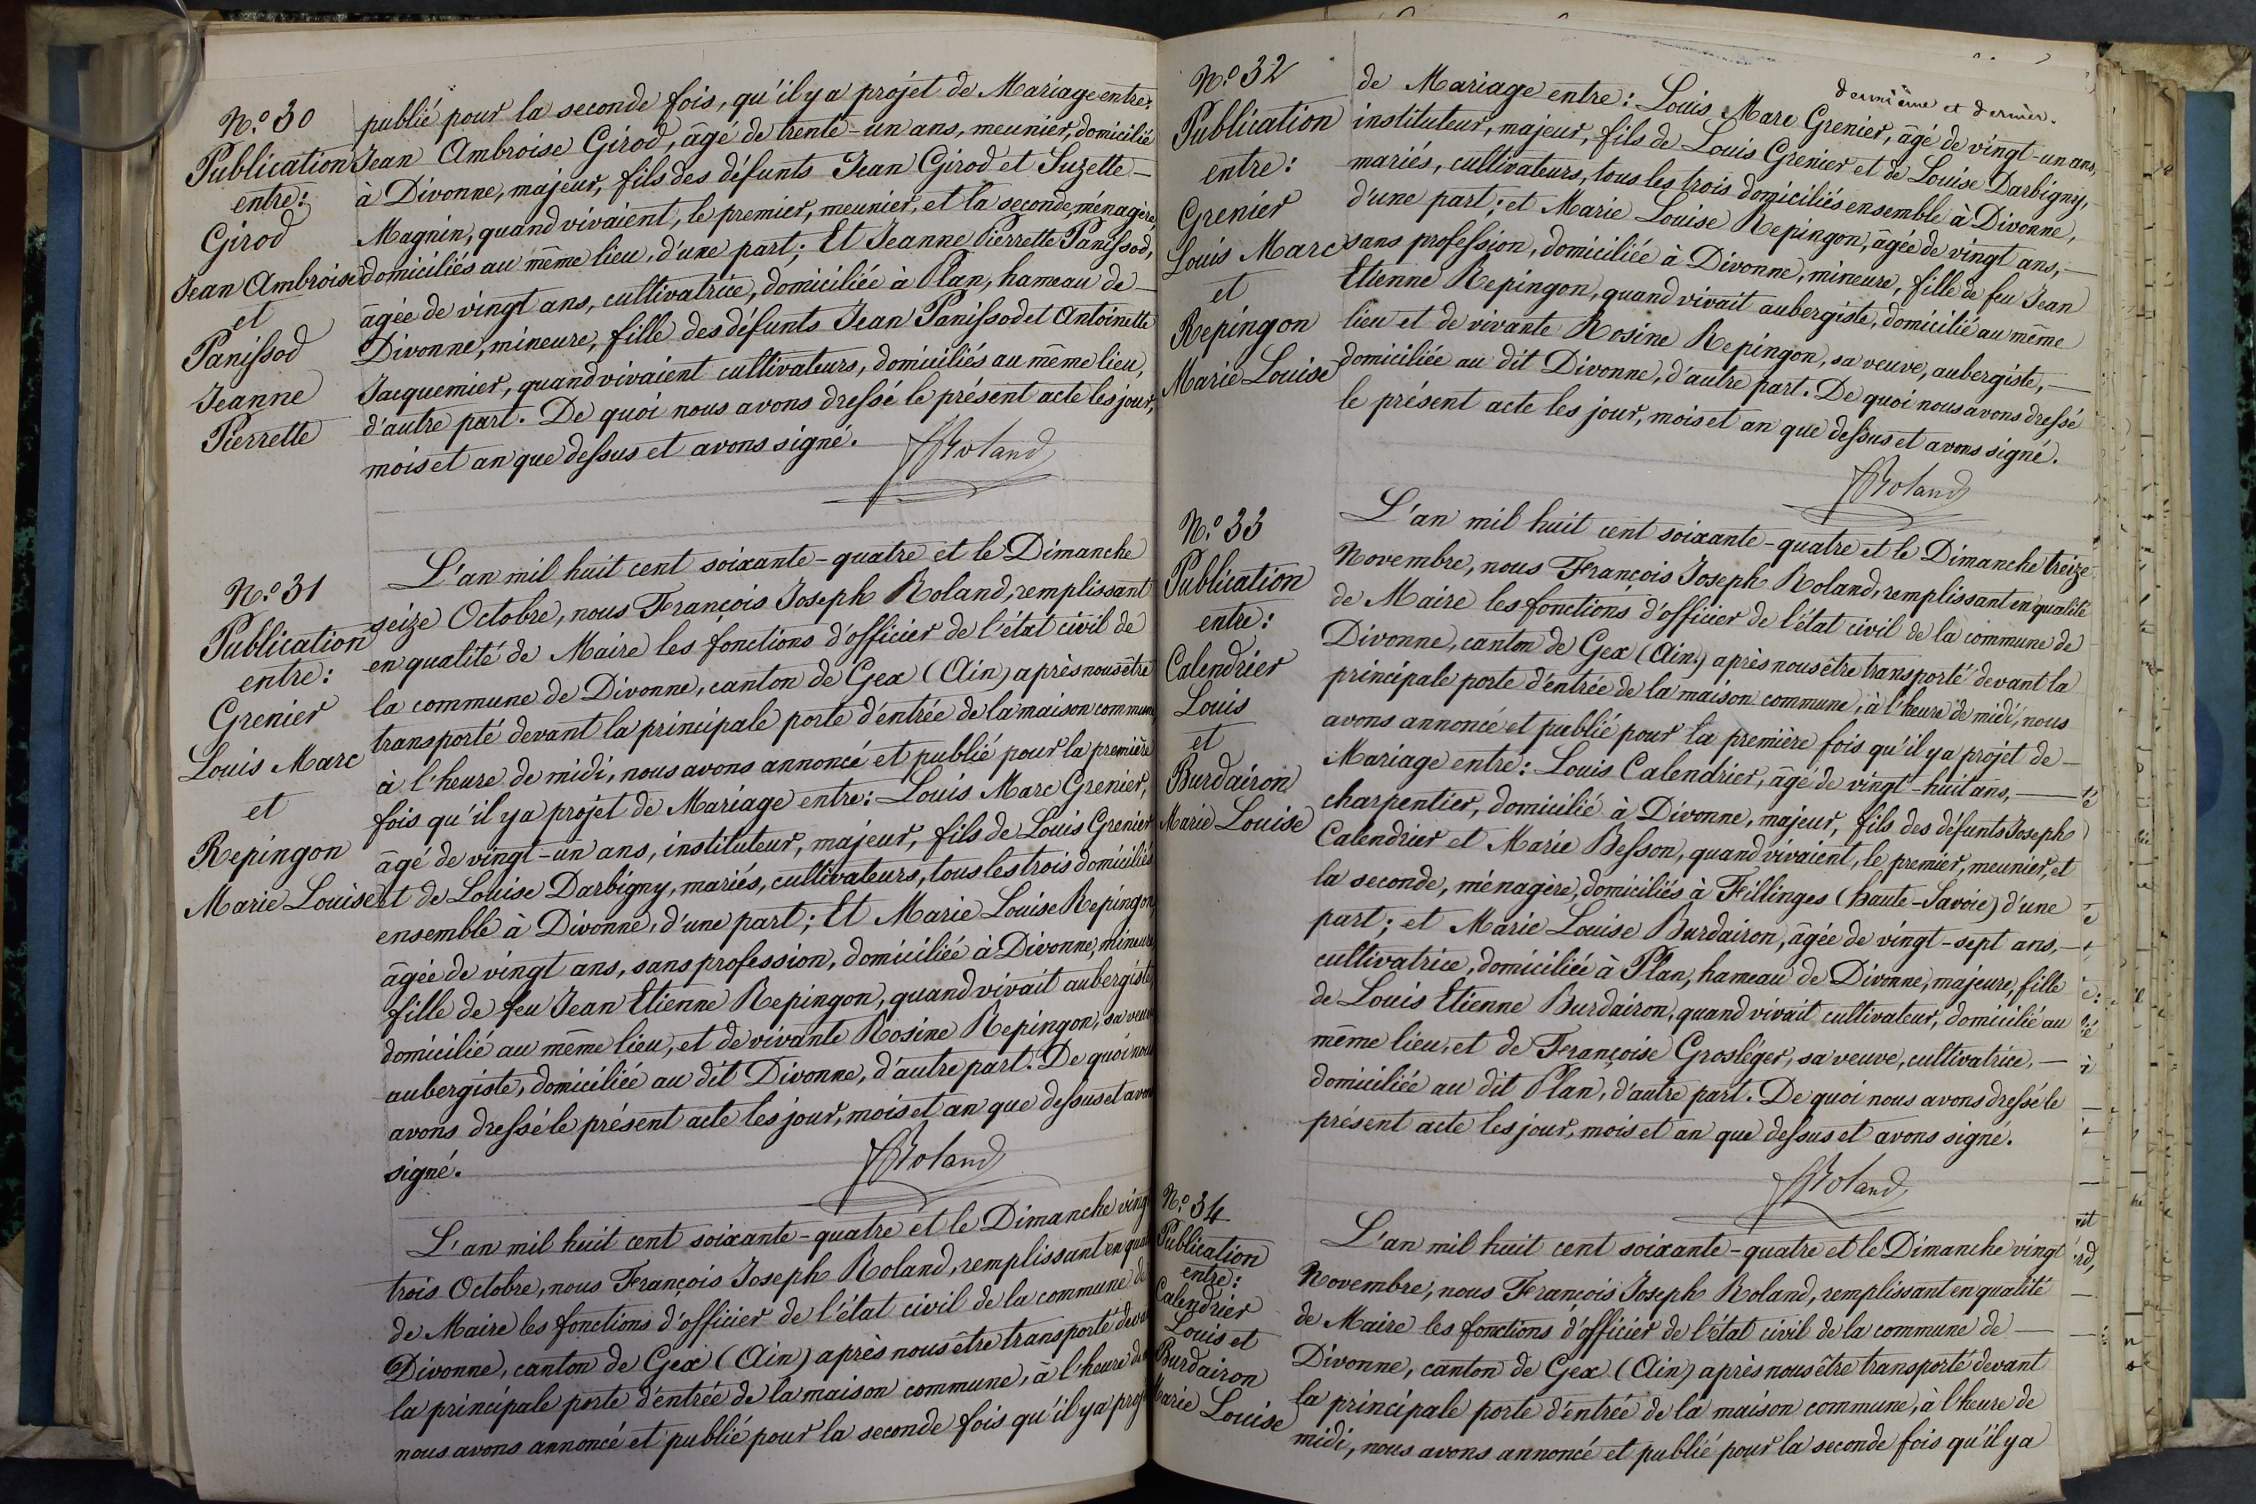 N.o 30
Publication
entre:
Girod
Jean Ambroise
et
Panissod
Jeanne
Pierrette
publié pour la seconde fois, qu'il y a projet de Mariage entre:
Jean Ambroise Girod, âgé de trente-un ans, meunier, domicilié
à Divonne, majeur, fils des défunts Jean Girod et Suzette
Magnin, quand vivaient, le premier, meunier, et la seconde, ménagère,
domiciliés au même lieu, d'une part; Et Jeanne Pierrette Panissod,
âgée de vingt ans, cultivatrice, domiciliée à Plan, hameau de
Divonne, mineure, fille des défunts Jean Panissod et Antoinette
Jacquemier, quand vivaient cultivateurs, domiciliés au même lieu,
d'autre part. De quoi nous avons dressé le présent acte les jour,
mois et an que dessus et avons signé.
Roland
N.o 31
Publication
entre:
Grenier
Louis Marc
et
Repingon
Marie Louise
L'an mil huit cent soixante-quatre et le Dimanche
seize Octobre, nous François Joseph Roland, remplissant
en qualité de Maire les fonctions d'officier de l'état civil de
la commune de Divonne, canton de Gex (Ain) après nous être
transporté devant la principale porte d'entrée de la maison commune
à l'heure de midi, nous avons annoncé et publié pour la première
fois qu'il y a projet de Mariage entre: Louis Marc Grenier,
âgé de vingt-un ans, instituteur, majeur, fils de Louis Grenier
et de Louise Darbigny, mariés, cultivateurs, tous les trois domiciliés
ensemble à Divonne, d'une part; Et Marie Louise Repingon,
âgée de vingt ans, sans profession, domiciliée à Divonne, mineure,
fille de feu Jean Etienne Repingon, quand vivait aubergiste,
domicilié au même lieu, et de vivante Rosine Repingon, sa veuve
aubergiste, domiciliée au dit Divonne, d'autre part. De quoi nous
avons dressé le présent acte les jour, mois et an que dessus et avons
signé.
Roland
L'an mil huit cent soixante-quatre et le Dimanche vingt
trois Octobre, nous François Joseph Roland, remplissant en qualité
de Maire les fonctions d'officier de l'état civil de la commune de
Divonne, canton de Gex (Ain) après nous être transporté devant
la principale porte d'entrée de la maison commune, à l'heure de
nous avons annoncé et publié pour la seconde fois qu'il y a projet
N.o 32
Publication
entre:
Grenier
Louis Marc
et
Repingon
Marie Louise
et dernier.
de Mariage entre: Louis Marc Grenier, âgé de vingt-un ans,
instituteur, majeur, fils de Louis Grenier et de Louise Darbigny,
mariés, cultivateurs, tous les trois domiciliés ensemble à Divonne,
d'une part; et Marie Louise Repingon, âgée de vingt ans,
sans profession, domiciliée à Divonne, mineure, fille de feu Jean
Etienne Repingon, quand vivait aubergiste, domicilié au même
lieu et de vivante Rosine Repingon, sa veuve, aubergiste,
domiciliée au dit Divonne, d'autre part. De quoi nous avons dressé
le présent acte les jour, mois et an que dessus et avons signé.
Roland
N.o 33
Publication
entre:
Calendrier
Louis
et
Burdairon
Marie Louise
L'an mil huit cent soixante-quatre et le Dimanche treize
Novembre, nous François Joseph Roland, remplissant en qualité
de Maire les fonctions d'officier de l'état civil de la commune de
Divonne, canton de Gex (Ain) après nous être transporté devant la
principale porte d'entrée de la maison commune, à l'heure de midi, nous
avons annoncé et publié pour la première fois qu'il y a projet de
Mariage entre: Louis Calendrier, âgé de vingt-huit ans,
charpentier, domicilié à Divonne, majeur, fils des défunts Joseph
Calendrier et Marie Besson, quand vivaient, le premier, meunier, et
la seconde, ménagère, domiciliés à Fillinges (haute-Savoie) d'une
part; et Marie Louise Burdairon, âgée de vingt-sept ans,
cultivatrice, domiciliée à Plan, hameau de Divonne, majeure, fille
de Louis Etienne Burdairon, quand vivait cultivateur, domicilié au
même lieu, et de Françoise Grosléger, sa veuve, cultivatrice,
domiciliée au dit Plan, d'autre part. De quoi nous avons dressé le
présent acte les jour, mois et an que dessus et avons signé.
Roland
N.o 34
Publication
entre:
Calendrier
Louis et
Burdairon
Marie Louise
L'an mil huit cent soixante-quatre et le Dimanche vingt
Novembre, nous François Joseph Roland, remplissant en qualité
de Maire les fonctions d'officier de l'état civil de la commune de
Divonne, canton de Gex (Ain) après nous être transporté devant
la principale porte d'entrée de la maison commune, à l'heure de
midi, nous avons annoncé et publié pour la seconde fois qu'il y a